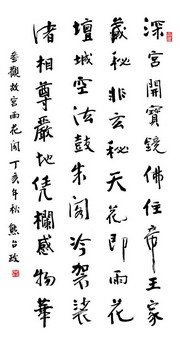 深宮開寶鏡佛住帝王家
藏秘非玄秘天花即雨花
壇城空法鼓朱閣冷袈裟
諸相尊嚴地凭欄感物華
參觀故宮雨花閣丁亥年秋熊召政